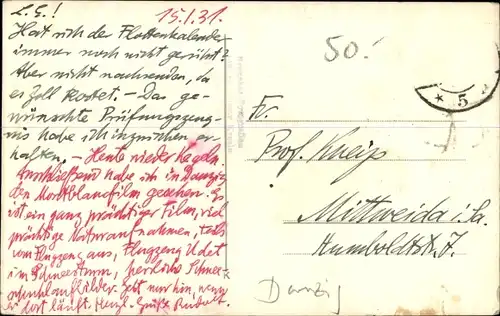 L. E.!
15.1.31.
Hat sich der Flottenkalender
immer noch nicht gerührt?
Aber nicht nachsenden, da
er Zoll kostet. – Das ge-
wünschte Prüfungszeug-
nis habe ich inzwischen er-
halten. – Heute wieder Kegeln.
Anschließend habe ich in Danzig
den Montblancfilm gesehen. Es
ist ein ganz prächtiger Film, viel
prächtige Naturaufnahmen, teils
vom Flugzeug aus, Flugzeug Udet
im Schneesturm, herrliche Schnee-
schuhlaufbilder. Geht nur hin, wenn
er dort läuft. Herzl. Grüße
50.-
* 5
Fr.
Prof. Kneip
Mittweida i. Sa.
Humboldtstr. 7.
Danzig